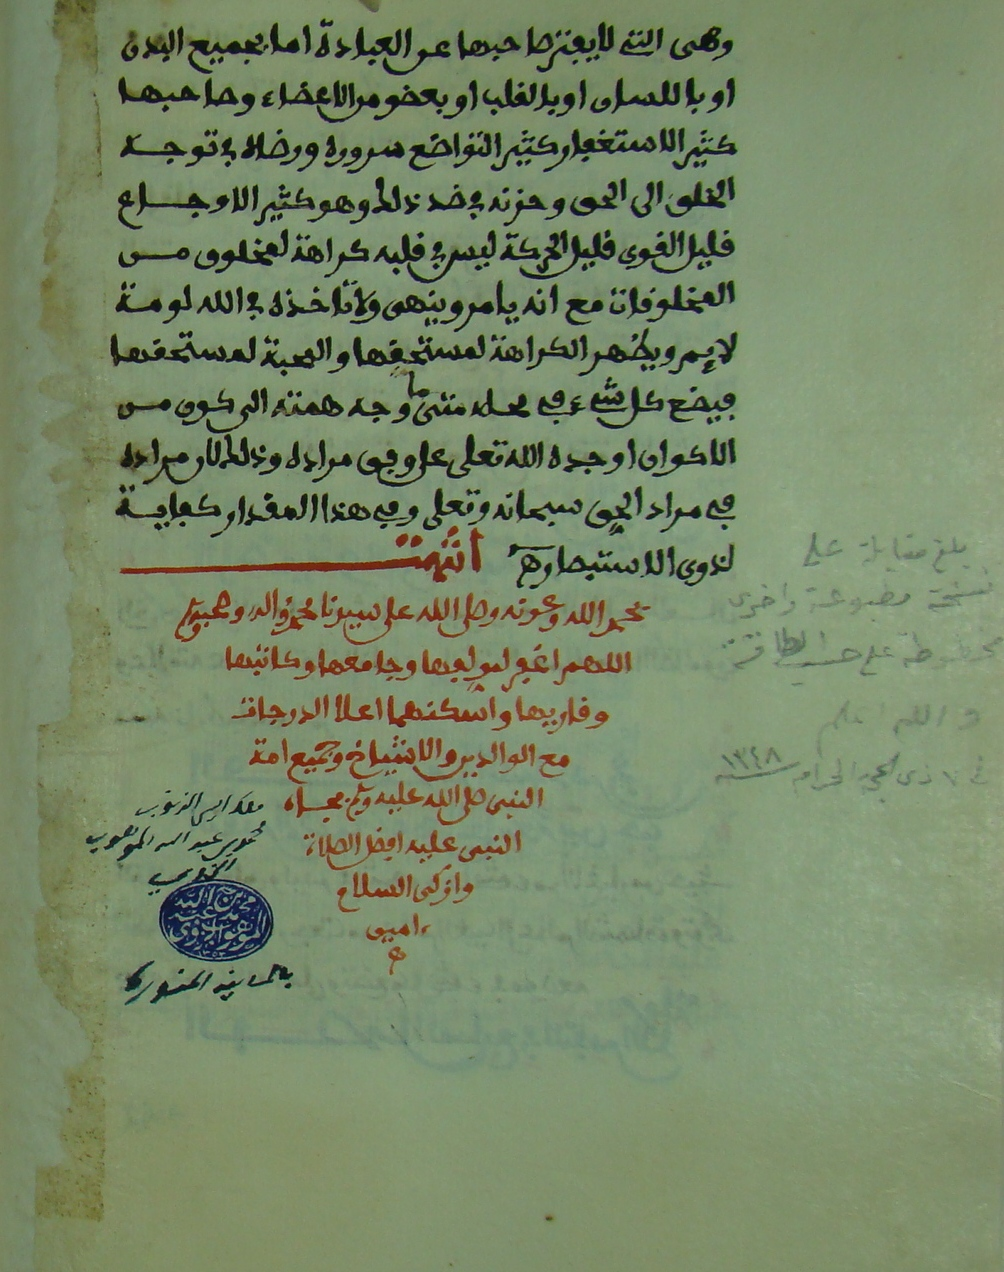 وهى التى لا يفتر صاحبها عن العبادة اما بجميع البدن
او باللسان او بالقلب او بعضو من الاعضاء وصاحبها
كثير الاستغفار كثير التواضع سروره ورضاه في توجه
الخلق الى الحق وحزنه في ضد ذلك وهو كثير الاوجاع
قليل القوى قليل الحركة ليس في قلبه كراهة لمخلوق من
المخلوقات مع انه يامر وينهى ولا تاخذه في الله لومة
لايم ويظهر الكراهة لمستحقها والمحبة لمستحقها
فيضع كل شيء في محله متى ما وجه همته الى كون من
الاكوان اوجده الله تعلى على وفق مراده وذلك لان مراده
في مراد الحق سبحانه وتعلى وفي هذا المقدار كفاية
لذوى الاستبصار اه انتهت
بحمد الله وعونه وصلى الله على سيدنا محمد واله وصحبه
اللهم اغفر لمولفها وجامعها وكاتبها
وقاريها واسكنهما اعلا الدرجات
مع الوالدين والاشياخ وجميع امة
النبى صلى الله عليه وسلم بجاه
النبى عليه افضل الصلاة
وازكى السلام
ءامين
بلغ مقابلة على
نسخة مطبوعة واخرى
مخطوطة على حسب الطاقة
والله اعلم
في ٧ ذى الحجة الحرام سنة ١٣٤٨
محمد بن عبد الله الموهوب
بالمدينة المنورة